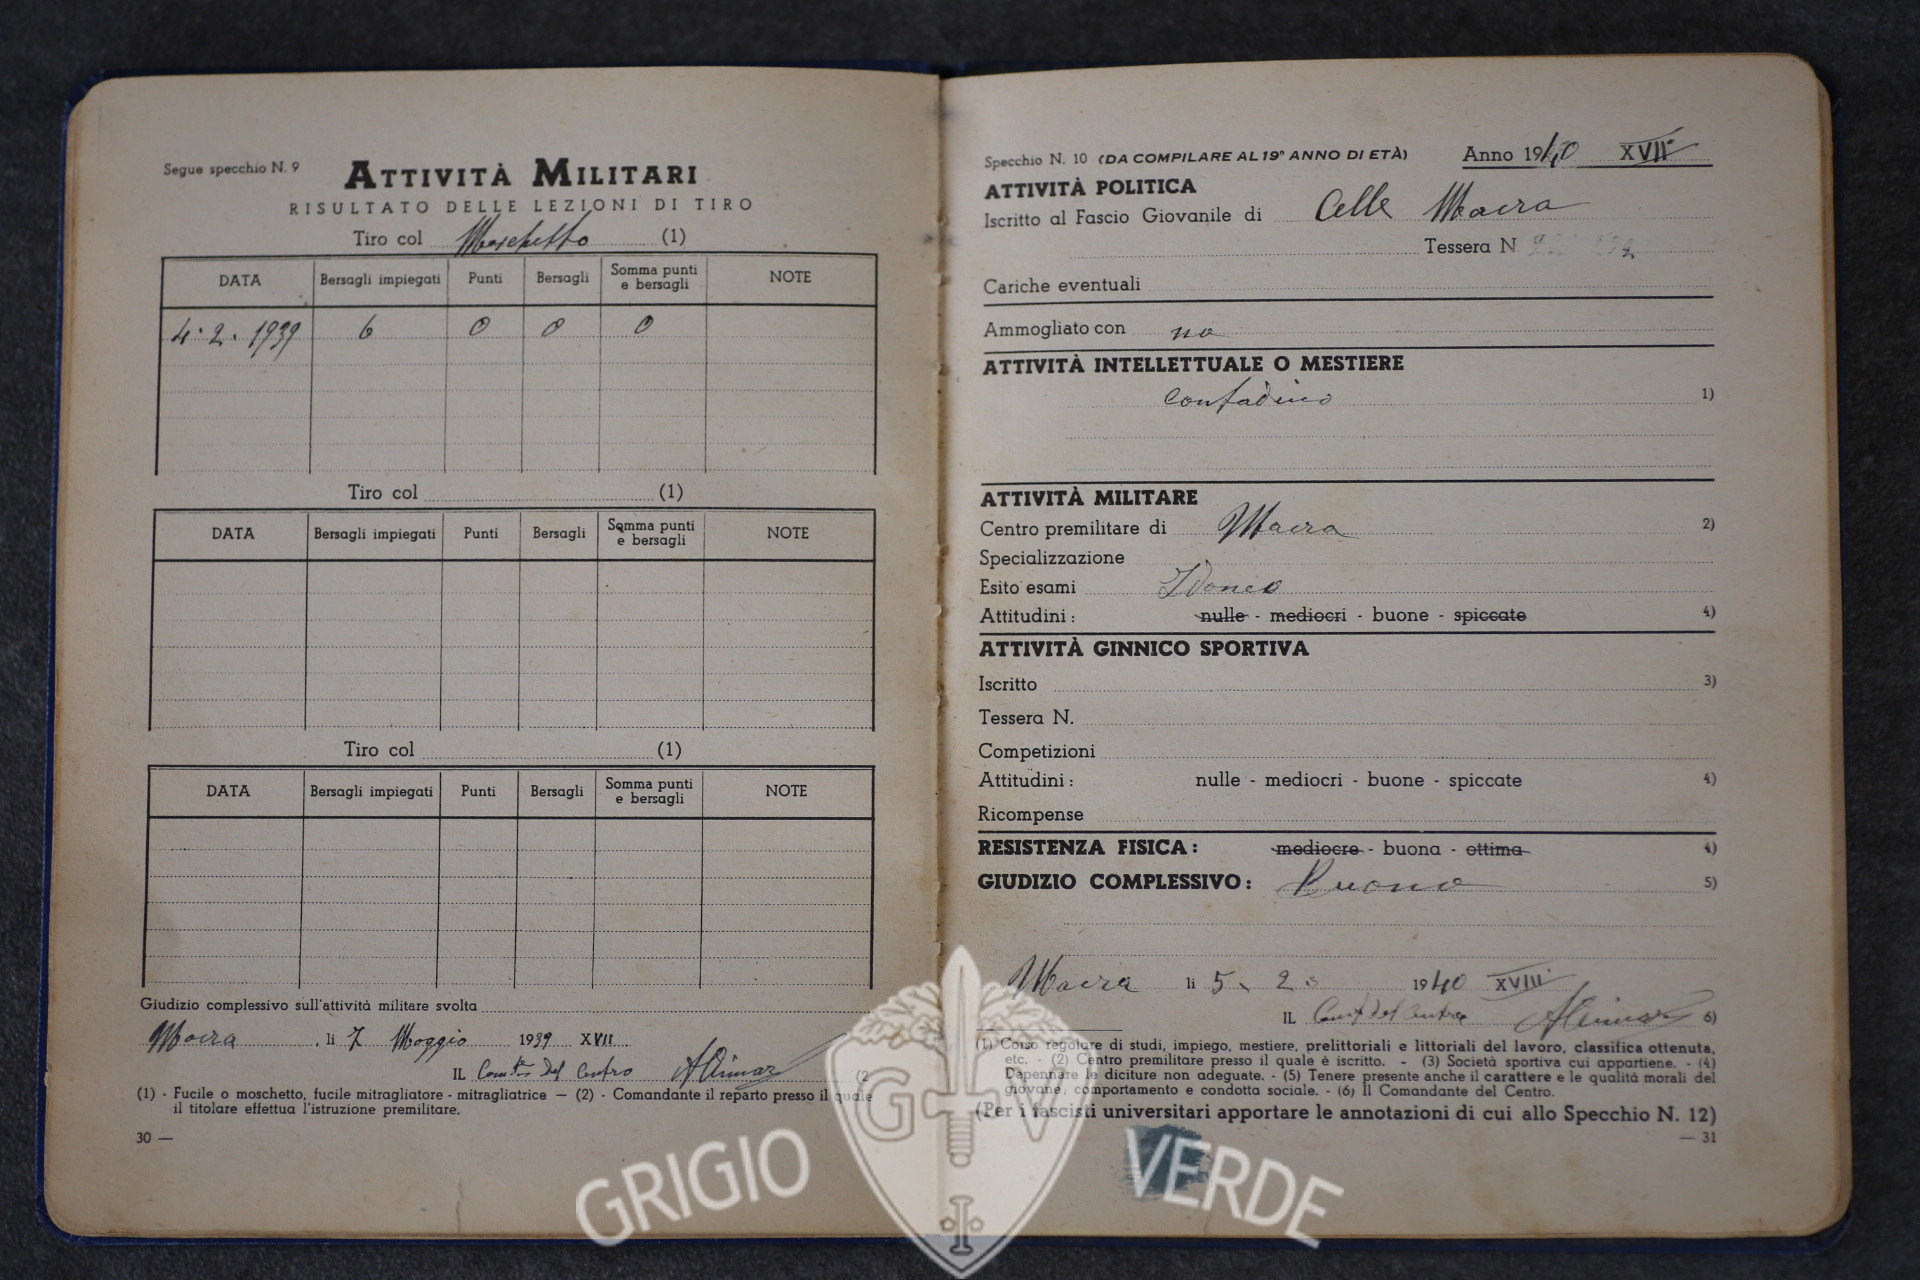 Segue specchio N. 9
ATTIVITÀ MILITARI
RISULTATO DELLE LEZIONI DI TIRO
Tiro col Moschetto (1)
DATA Bersagli impiegati Punti Bersagli Somma punti e bersagli NOTE
4. 2. 1939 6 0 0 0
Tiro col (1)
DATA Bersagli impiegati Punti Bersagli Somma punti e bersagli NOTE
Tiro col (1)
DATA Bersagli impiegati Punti Bersagli Somma punti e bersagli NOTE
Giudizio complessivo sull'attività militare svolta
Macra, li 7 Maggio 1939 XVII
IL Com.te del Centro (2
(1) - Fucile o moschetto, fucile mitragliatore - mitragliatrice — (2) - Comandante il reparto presso il quale
il titolare effettua l'istruzione premilitare.
30 —
Specchio N. 10 (DA COMPILARE AL 19° ANNO DI ETÀ) Anno 1940 XVII
ATTIVITÀ POLITICA
Iscritto al Fascio Giovanile di Celle Macra
Tessera N
Cariche eventuali
Ammogliato con no
ATTIVITÀ INTELLETTUALE O MESTIERE
contadino 1)
ATTIVITÀ MILITARE
Centro premilitare di Macra 2)
Specializzazione
Esito esami Idoneo
Attitudini: nulle - mediocri - buone - spiccate 4)
ATTIVITÀ GINNICO SPORTIVA
Iscritto 3)
Tessera N.
Competizioni
Attitudini: nulle - mediocri - buone - spiccate 4)
Ricompense
RESISTENZA FISICA: mediocre - buona - ottima 4)
GIUDIZIO COMPLESSIVO: Buono 5)
Macra li 5. 2. 1940 XVIII
IL Com.te del Centro 6)
(1) Corso regolare di studi, impiego, mestiere, prelittoriali e littoriali del lavoro, classifica ottenuta,
etc. - (2) Centro premilitare presso il quale è iscritto. - (3) Società sportiva cui appartiene. - (4)
Depennare le diciture non adeguate. - (5) Tenere presente anche il carattere e le qualità morali del
giovane, comportamento e condotta sociale. - (6) Il Comandante del Centro.
(Per i fascisti universitari apportare le annotazioni di cui allo Specchio N. 12)
— 31
GRIGIO G V VERDE